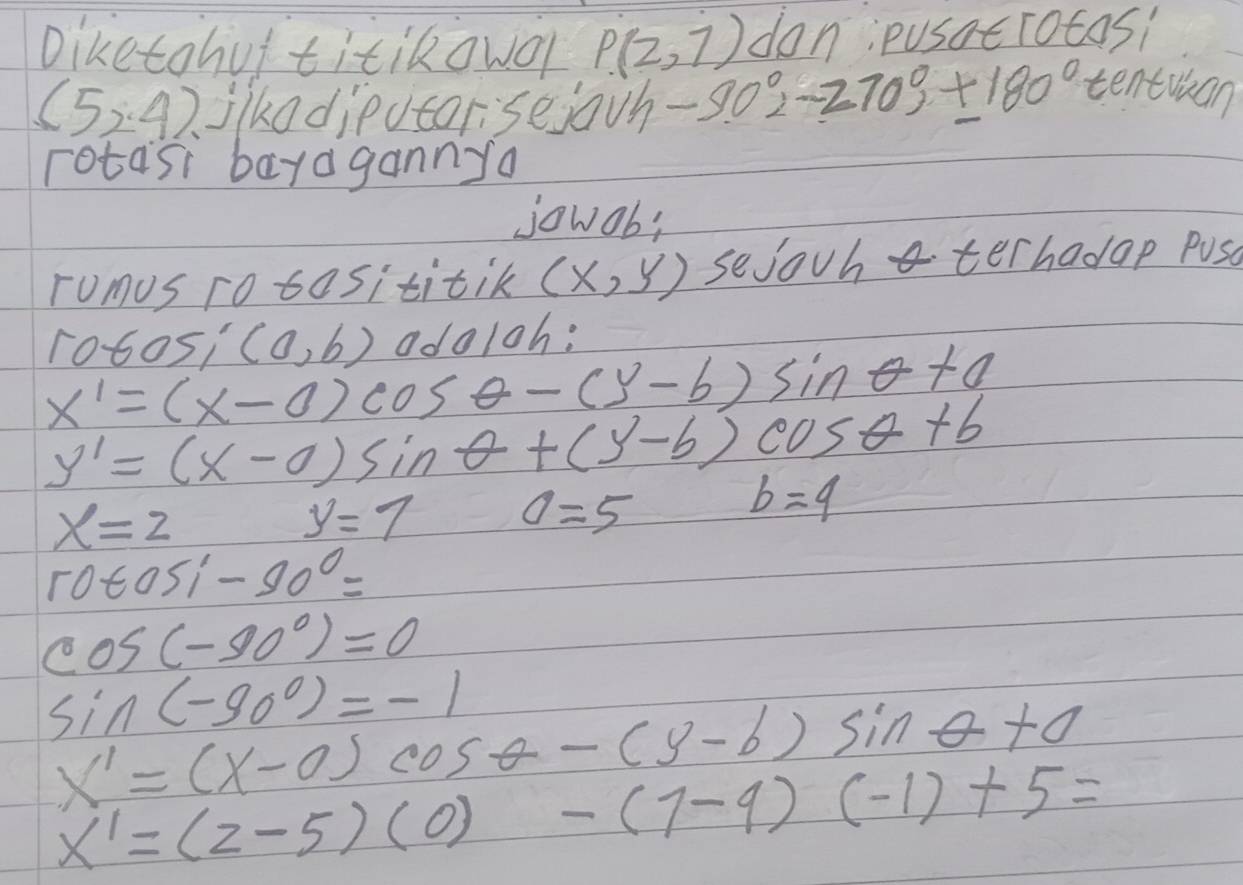 Diketahui titik awal P(2,7) dan pusat rotasi
(5,4). jika diputar sejauh -90°; -270°; ±180° tentukan
rotasi bayagannya
jawab:
rumus rotasi titik (x,y) sejauh θ terhadap pusa
rotasi (a,b) adalah:
x' = (x-a) cos θ - (y-b) sin θ + a
y' = (x-a) sin θ + (y-b) cos θ + b
x=2 y=7 a=5 b=4
rotasi -90° =
cos (-90°) = 0
sin (-90°) = -1
x' = (x-a) cos θ - (y-b) sin θ + a
x' = (2-5) (0) - (7-4) (-1) + 5 =